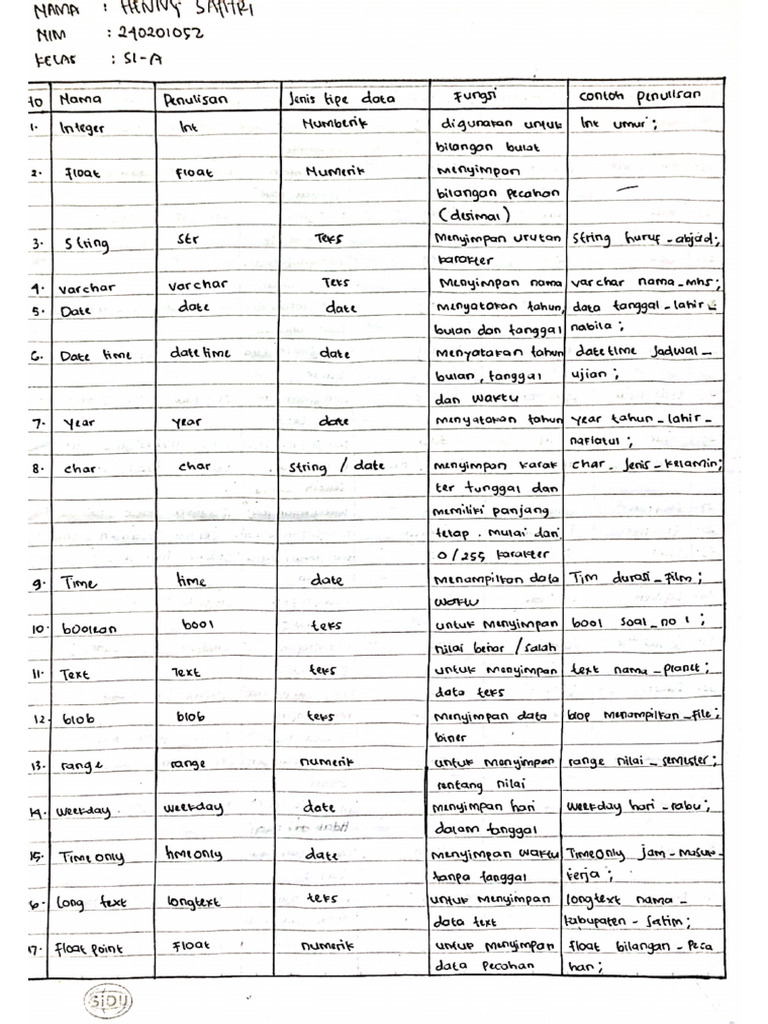 NAMA : HENNY SAFITRI
NIM : 240201052
KELAS : SI-A
No Nama Penulisan Jenis tipe data Fungsi contoh penulisan
1. Integer Int Numberik digunakan untuk Int umur;
bilangan bulat
2. float float Numerik Menyimpan
bilangan pecahan —
(desimal)
3. String str Teks Menyimpan urutan String huruf_abjad;
karakter
4. varchar varchar Teks Menyimpan nama varchar nama_mhs;
5. Date date date menyatakan tahun, data tanggal_lahir_
bulan dan tanggal nabila;
6. Date time datetime date Menyatakan tahun datetime Jadwal_
bulan, tanggal ujian;
dan waktu
7. year year date menyatakan tahun year tahun_lahir_
nafiatul;
8. char char string / date menyimpan karak char. Jenis_kelamin;
ter tunggal dan
memiliki panjang
tetap. mulai dari
0/255 karakter
9. Time time date Menampilkan data Tim durasi_film;
waktu
10. boolean bool teks untuk Menyimpan bool soal_no 1;
nilai benar/salah
11. Text Text teks untuk menyimpan text nama_planet;
data teks
12. blob blob teks Menyimpan data blop menampilkan_file;
biner
13. range range numerik untuk menyimpan range nilai_semester;
rentang nilai
14. weekday weekday date menyimpan hari weekday hari_rabu;
dalam tanggal
15. Time only timeonly date menyimpan waktu TimeOnly jam_masuk_
tanpa tanggal kerja;
6. Long text longtext teks untuk menyimpan longtext nama_
data text kabupaten_Jatim;
17. float point float numerik untuk menyimpan float bilangan_peca
data pecahan han;
SiDU